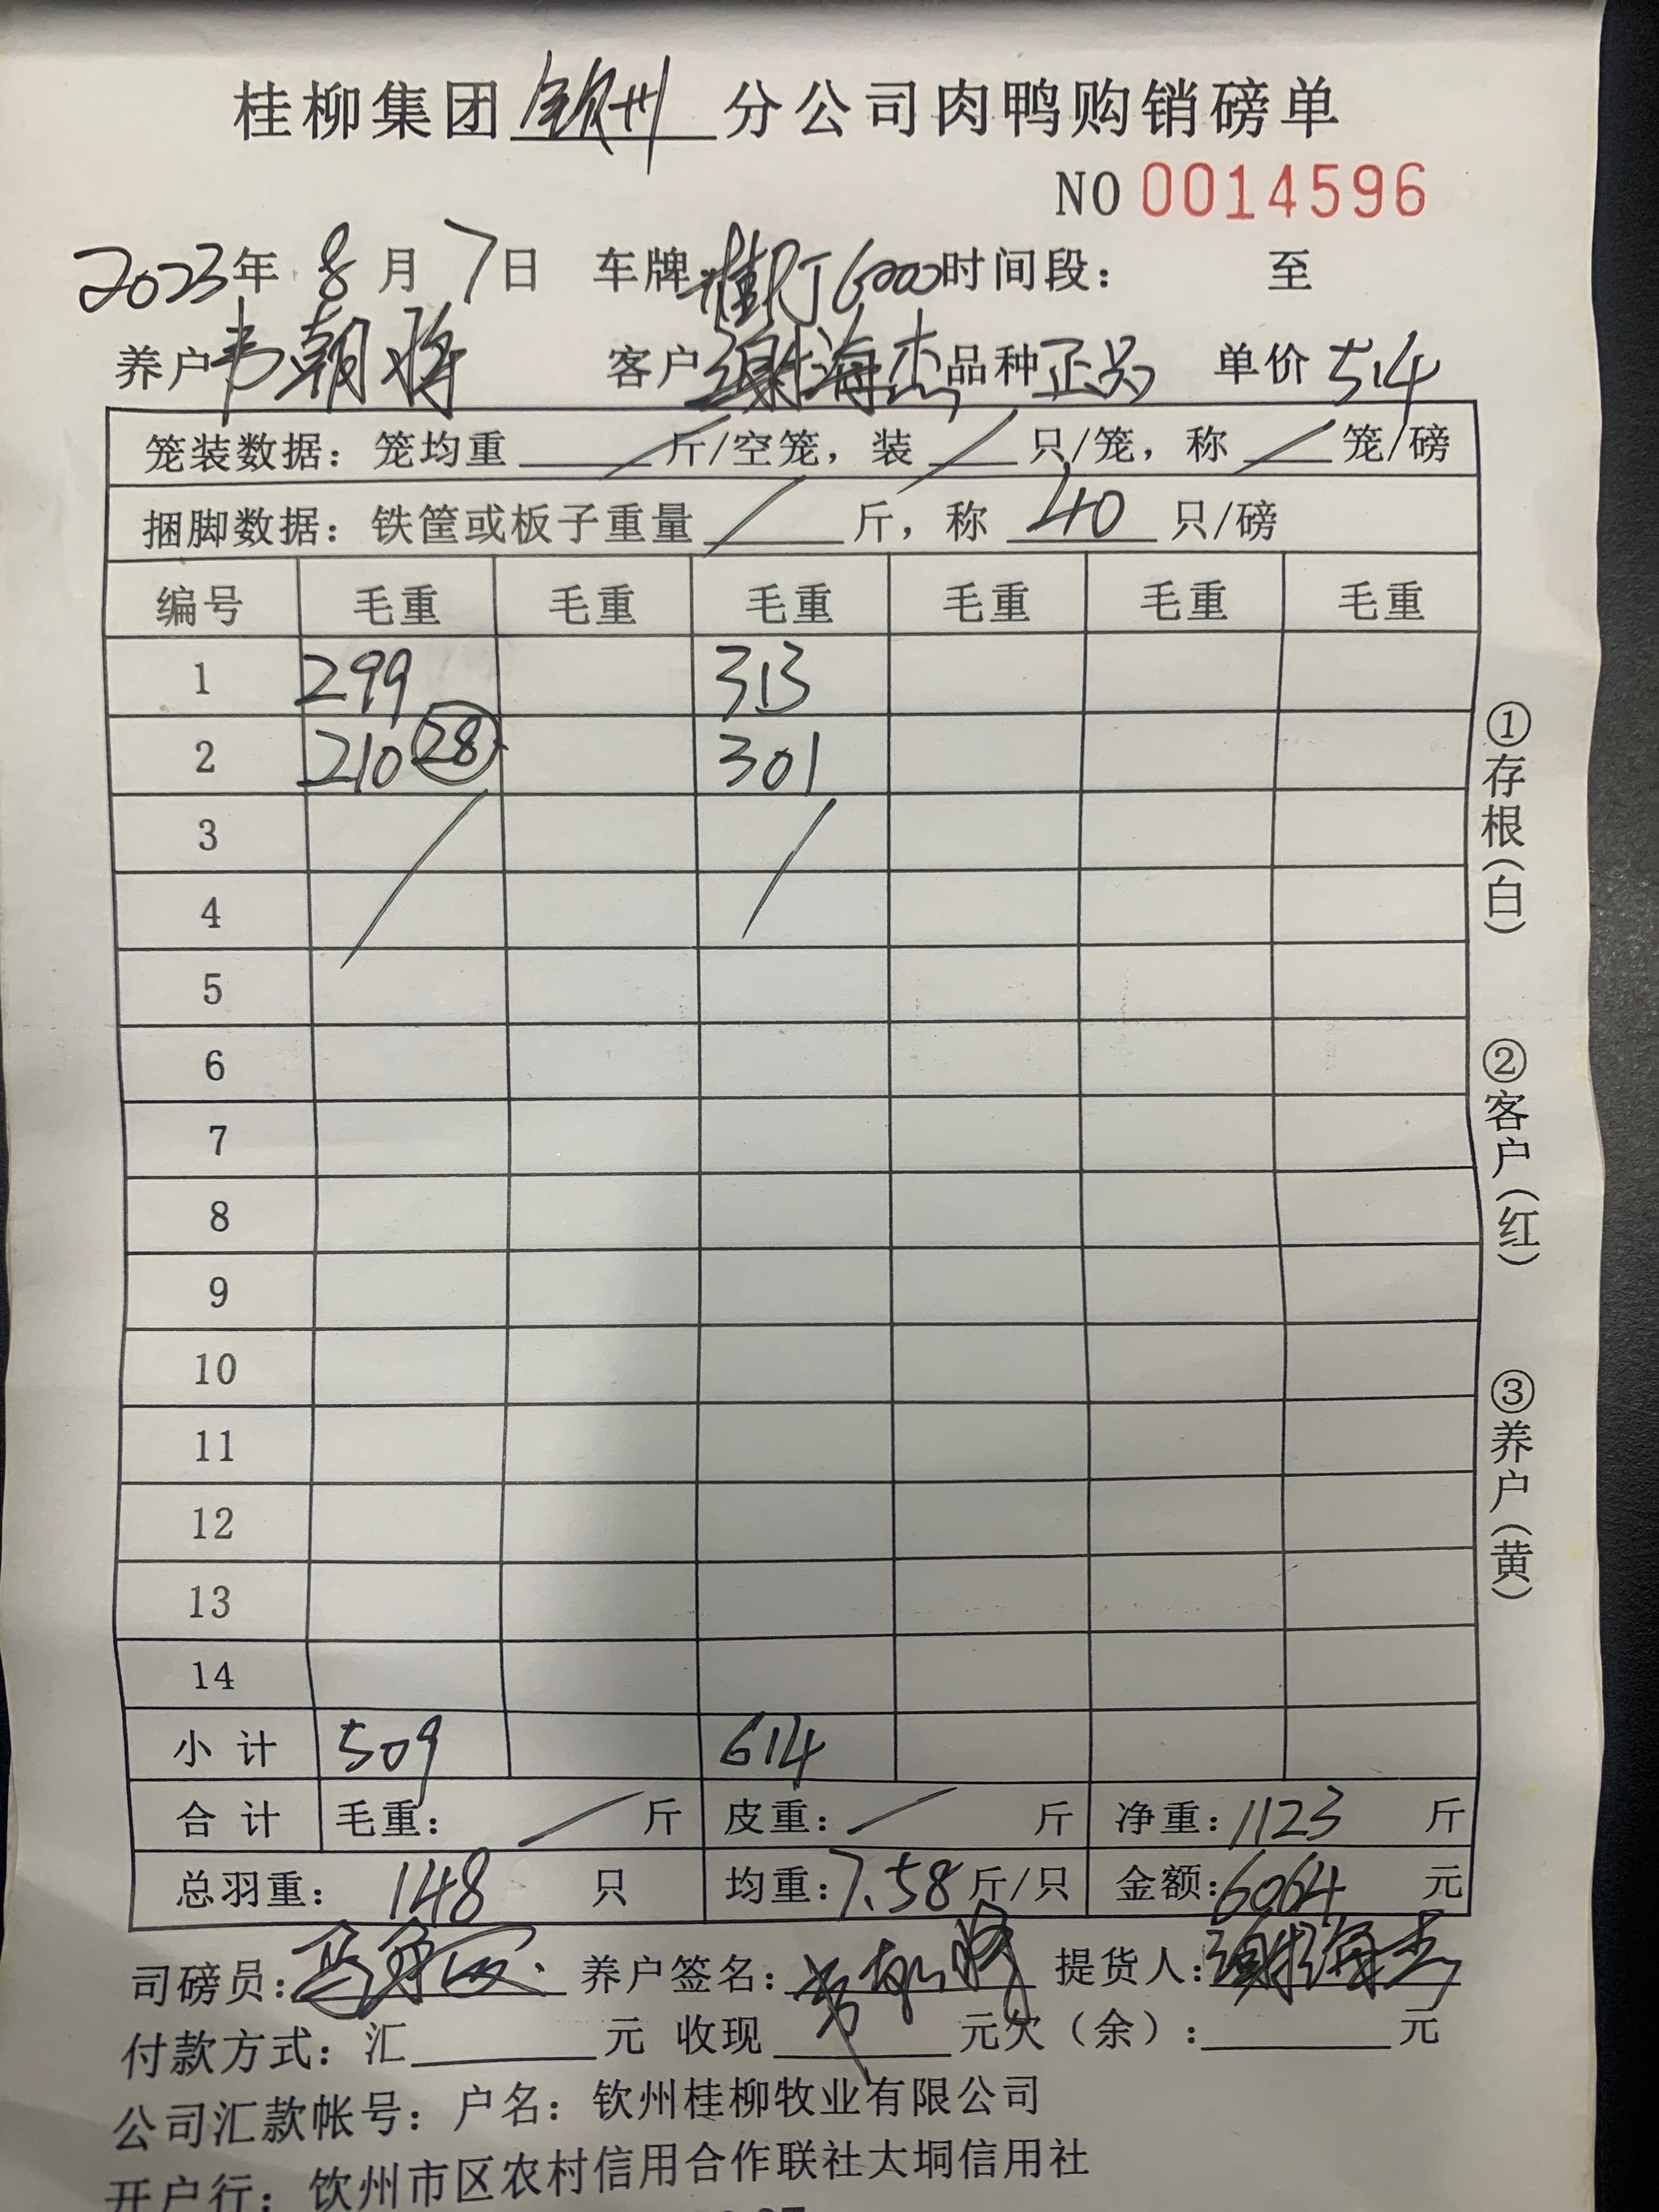 桂柳集团钦州分公司肉鸭购销磅单
NO 0014596
2023年 8月 7日 车牌:桂 6000 时间段: 至
养户 韦朝将 客户 谢海杰 品种 正品 单价 5.4
笼装数据: 笼均重 / 斤/空笼, 装 / 只/笼, 称 / 笼/磅
捆脚数据: 铁筐或板子重量 / 斤, 称 40 只/磅
编号 毛重 毛重 毛重 毛重 毛重 毛重
1 299 313
2 210 28 301
3
4
5
6
7
8
9
10
11
12
13
14
小计 509 614
合计 毛重: / 斤 皮重: / 斤 净重: 1123 斤
总羽重: 148 只 均重: 7.58 斤/只 金额: 6064 元
司磅员: 养户签名: 提货人: 谢海杰
付款方式: 汇 元 收现 元欠(余): 元
公司汇款帐号: 户名: 钦州桂柳牧业有限公司
开户行: 钦州市区农村信用合作联社大垌信用社
①存根(白)
②客户(红)
③养户(黄)